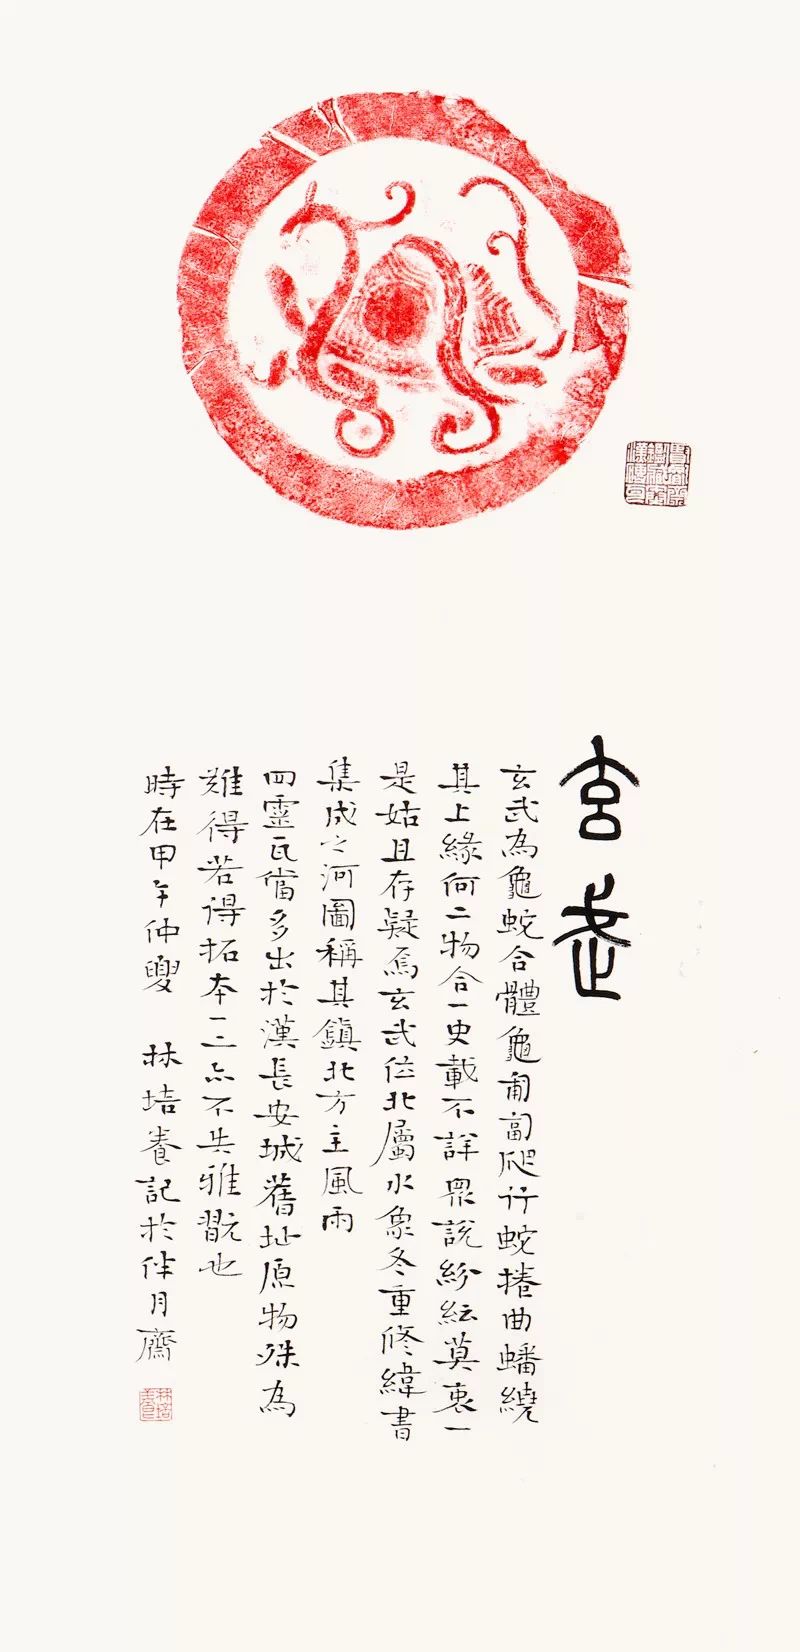 玄武
玄武為龜蛇合體龜匍匐爬行蛇捲曲蟠繞
其上緣何二物合一史載不詳眾說紛紜莫衷一
是姑且存疑焉玄武位北屬水象冬重修緯書
集成之河圖稱其鎮北方主風雨
四靈瓦儅多出於漢長安城舊址原物殊為
難得若得拓本一二亦不失雅翫也
時在甲午仲夏 林培養記於伴月齋